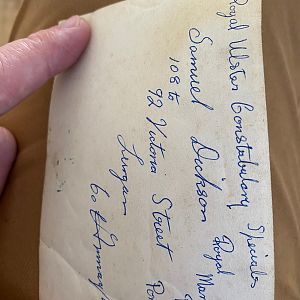 Royal Ulster Constabulary Specials
Samuel Dickson Royal
108 to
92 Victoria Street
Lurgan
Co Armagh